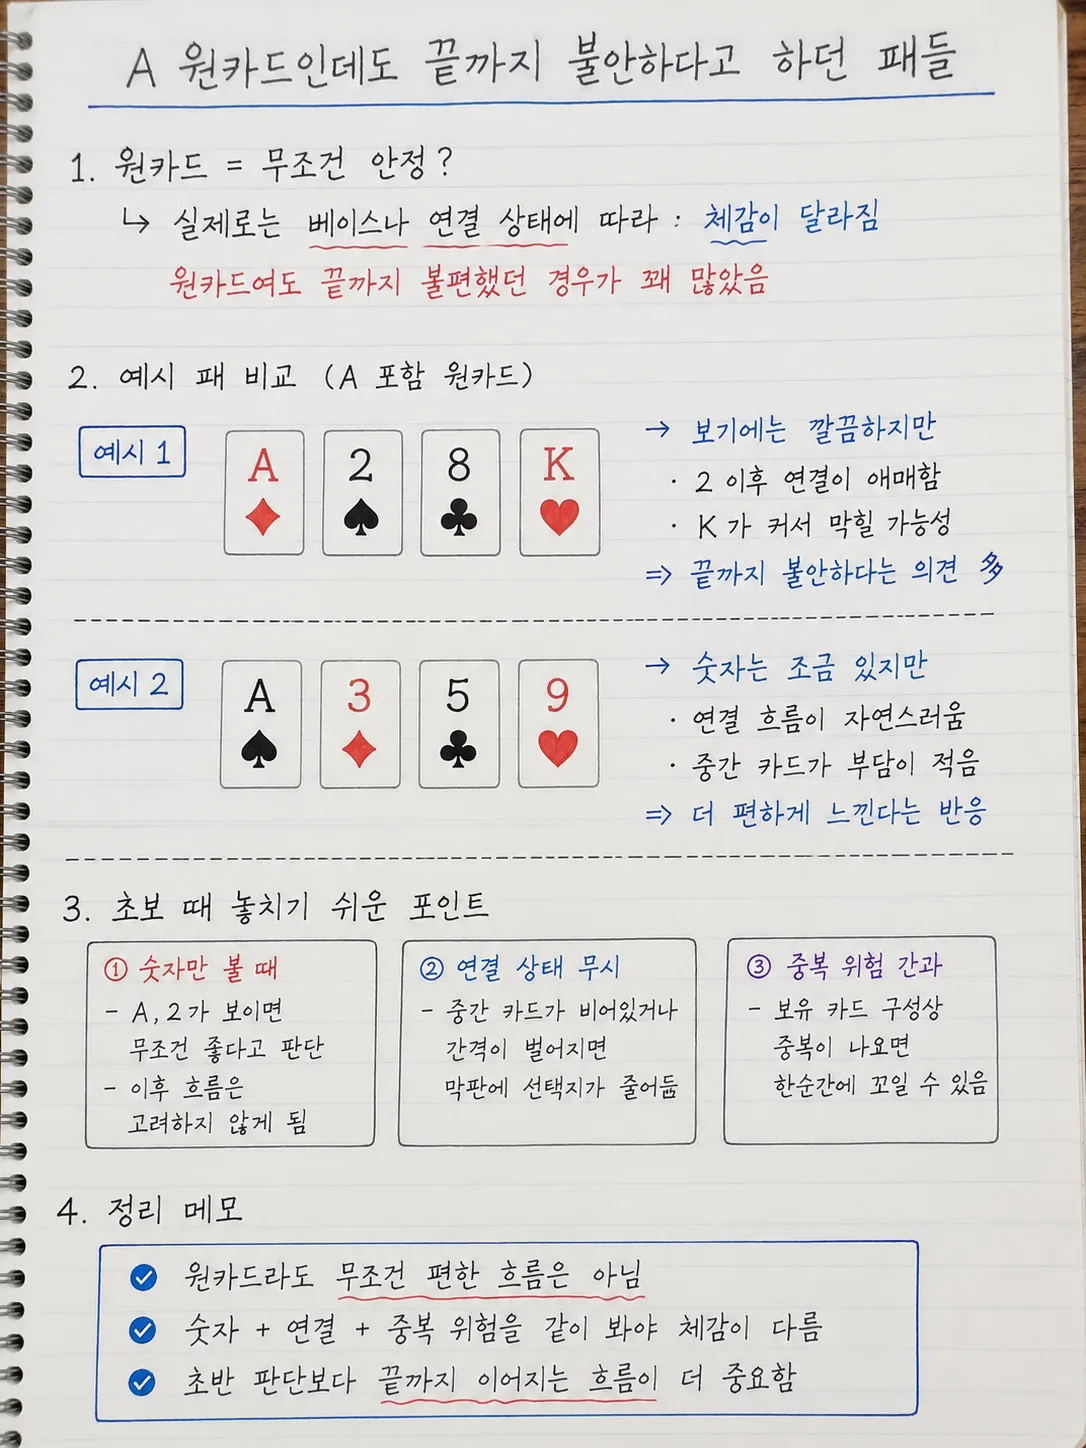 A 원카드인데도 끝까지 불안하다고 하던 패들
1. 원카드 = 무조건 안정?
↳ 실제로는 베이스나 연결 상태에 따라 : 체감이 달라짐
원카드여도 끝까지 불편했던 경우가 꽤 많았음
2. 예시 패 비교 (A 포함 원카드)
예시 1
A♦ 2♠ 8♣ K♥
→ 보기에는 깔끔하지만
· 2 이후 연결이 애매함
· K가 커서 막힐 가능성
⇒ 끝까지 불안하다는 의견 多
예시 2
A♠ 3♦ 5♣ 9♥
→ 숫자는 조금 있지만
· 연결 흐름이 자연스러움
· 중간 카드가 부담이 적음
⇒ 더 편하게 느낀다는 반응
3. 초보 때 놓치기 쉬운 포인트
① 숫자만 볼 때
- A, 2가 보이면
무조건 좋다고 판단
- 이후 흐름은
고려하지 않게 됨
② 연결 상태 무시
- 중간 카드가 비어있거나
간격이 벌어지면
막판에 선택지가 줄어듦
③ 중복 위험 간과
- 보유 카드 구성상
중복이 나오면
한순간에 꼬일 수 있음
4. 정리 메모
원카드라도 무조건 편한 흐름은 아님
숫자 + 연결 + 중복 위험을 같이 봐야 체감이 다름
초반 판단보다 끝까지 이어지는 흐름이 더 중요함